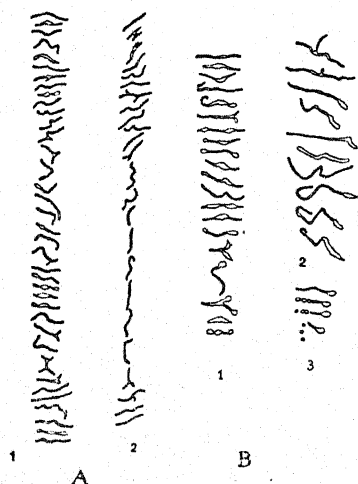 2
3
1
1
2
A
B